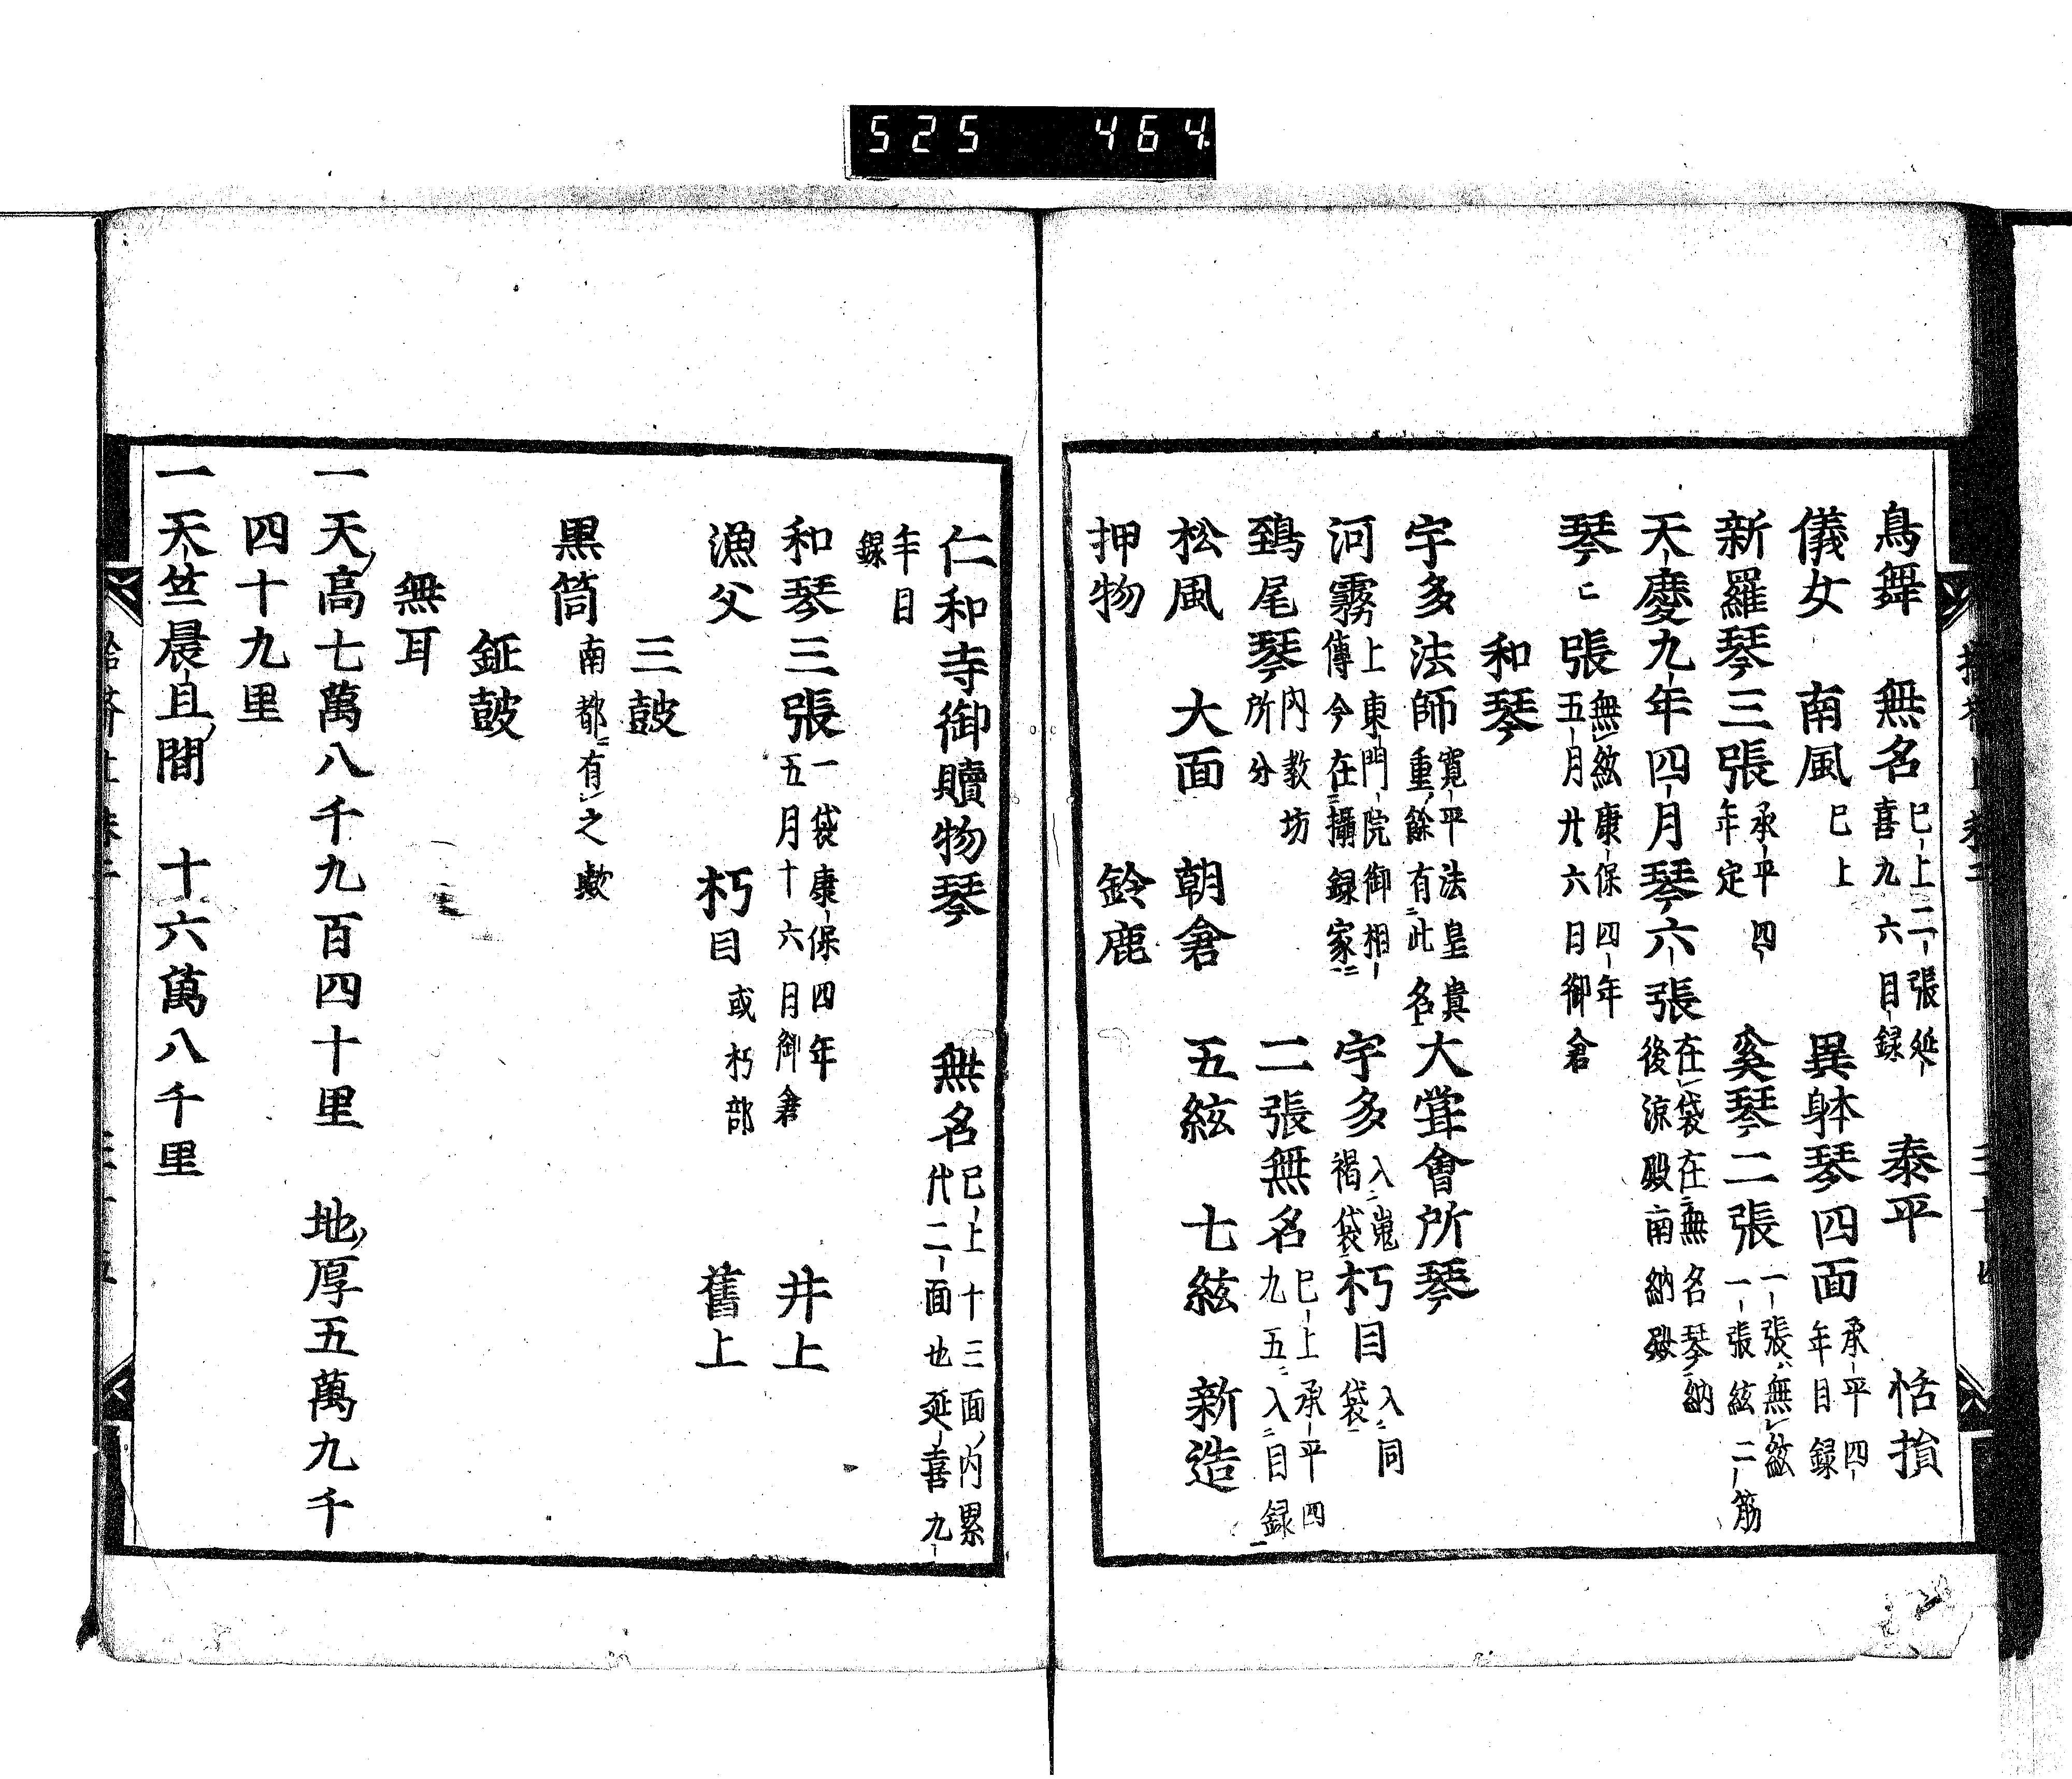 525 464
鳥舞 無名 已上二張延喜九六目録 泰平 恬損
儀女 南風 已上 異躰琴四面 承平四年目録
新羅琴三張 承平四年定 奚琴二張 一張ハ無絃一張絃二筋
天慶九年四月琴六張 在袋在無名琴納後涼殿南納殿
琴二張 無絃康保四年五月廿六日御倉
和琴
宇多法師 寛平法皇貴重餘有此名 大甞會所琴
河霧 上東門院御相傳今在攝録家 宇多 入嵬褐袋 朽目 入同袋
鵄尾琴 内教坊所分 二張無名 已上承平四九五入目録
松風 大面 朝倉 五絃 七絃 新造
押物 鈴鹿
仁和寺御贖物琴 無名 已上十三面内累代二面也延喜九
年目録
和琴三張 一袋康保四年五月十六月御倉 井上
漁父 朽目 或朽部 舊上
三鼓
黒筒 南都ニ有之歟
鉦鼓
無耳
一天高七萬八千九百四十里 地厚五萬九千
四十九里
一天竺晨旦間 十六萬八千里